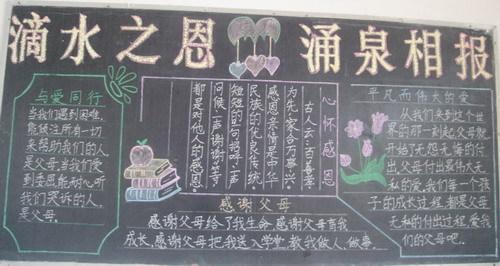 滴水之恩 涌泉相报
与爱同行
当我们遇到困难,
能倾注所有一切
来帮助我们的人
是父母,当我们受
到委屈能耐心听
我们哭诉的人,
是父母。
心怀感恩
古人云:百善孝
为先,家合万事兴。
感恩亲情是中华
民族的优良传统
短短的一句招呼一声
问候,一声谢谢等等
都是对他人的感恩。
平凡而伟大的爱
从我们来到这个世
界的那一刻起父母就
开始了无怨无悔的付
出,父母付出最伟大无
私的爱,我们每一个孩
子的成长过程,都是父母
无私的付出过程,爱我
们的父母吧..
感谢父母
感谢父母给了我生命,感谢父母育我
成长,感谢父母把我送入学堂,教我做人、做事